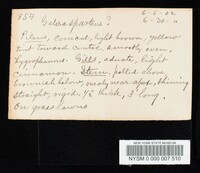 854 Galera sparteus? 6-6-02
6-20-
Pileus, conical, light brown, yellow
tint toward center, smooth, even.
Hygrophanous. Gills, adnate, bright
cinnamon. Stem, pallid above
brownish below, mealy near apex, shining
straight, rigid. thick, 3' long.
On grass lawns
NEW YORK STATE MUSEUM
NYSM 0 000 007 510